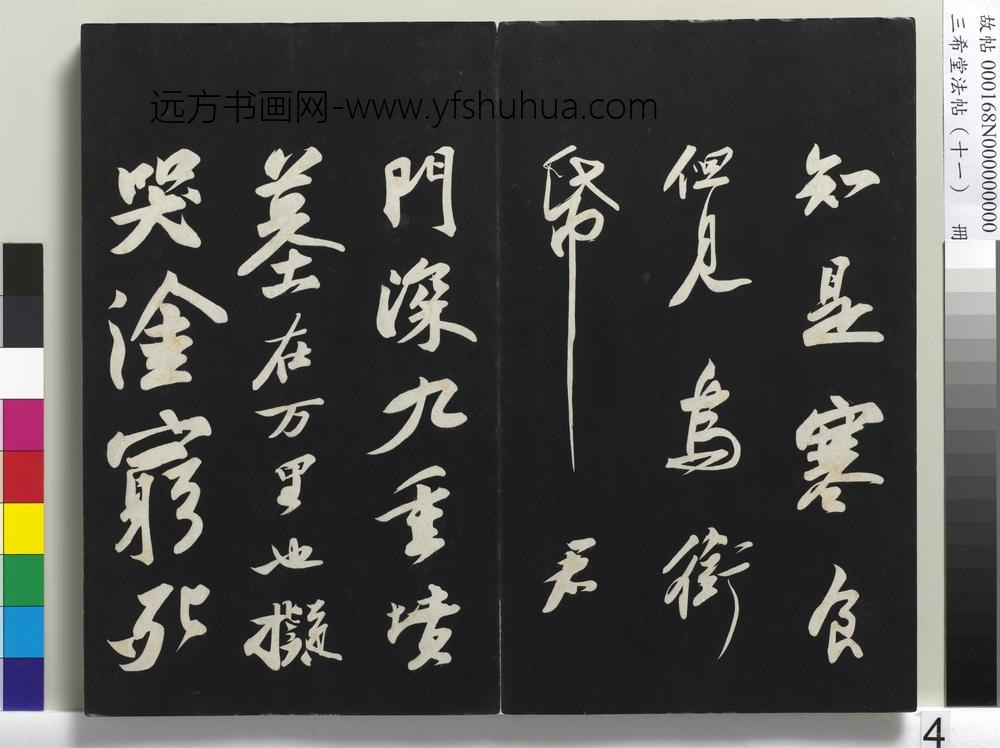 知是寒食
但見烏銜
帋君
門深九重墳
墓在万里也擬
哭塗窮死
远方书画网-www.yfshuhua.com
故帖 000168N000000000
三希堂法帖(十一) 冊
4